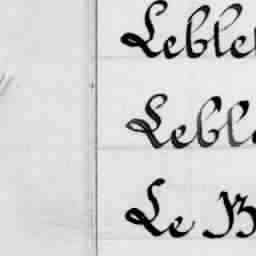 Leble
Lebl
Le B